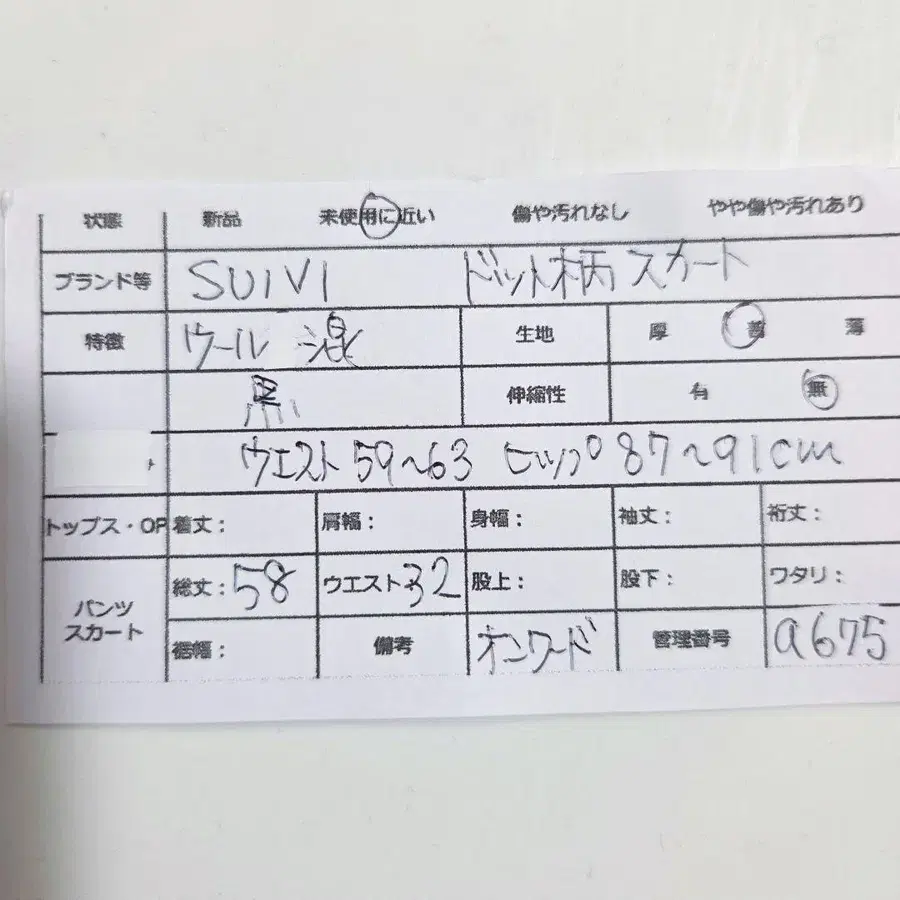 状態 新品 未使用に近い 傷や汚れなし やや傷や汚れあり
ブランド等 SUIVI ドット柄スカート
特徴 ウール混 生地 厚 普 薄
黒 伸縮性 有 無
ウエスト59~63 ヒップ87~91cm
トップス・OP 着丈: 肩幅: 身幅: 袖丈: 裄丈:
パンツ スカート 総丈:58 ウエスト32 股上: 股下: ワタリ:
裾幅: 備考 オンワード 管理番号 a675